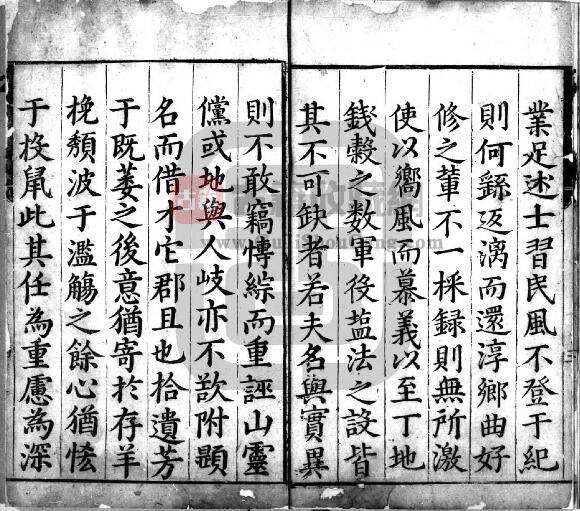 業足述士習民風不登于紀
則何繇返漓而還淳鄉曲好
修之輩不一採録則無所激
使以嚮風而慕義以至丁地
錢穀之数軍役塩法之設皆
其不可缺者若夫名與實異
則不敢竊慱綜而重誣山靈
儻或地與人岐亦不欲附顕
名而借才它郡且也拾遺芳
于既萎之後意猶寄於存羊
挽頽波于濫觴之餘心猶怯
于投鼠此其任為重慮為深